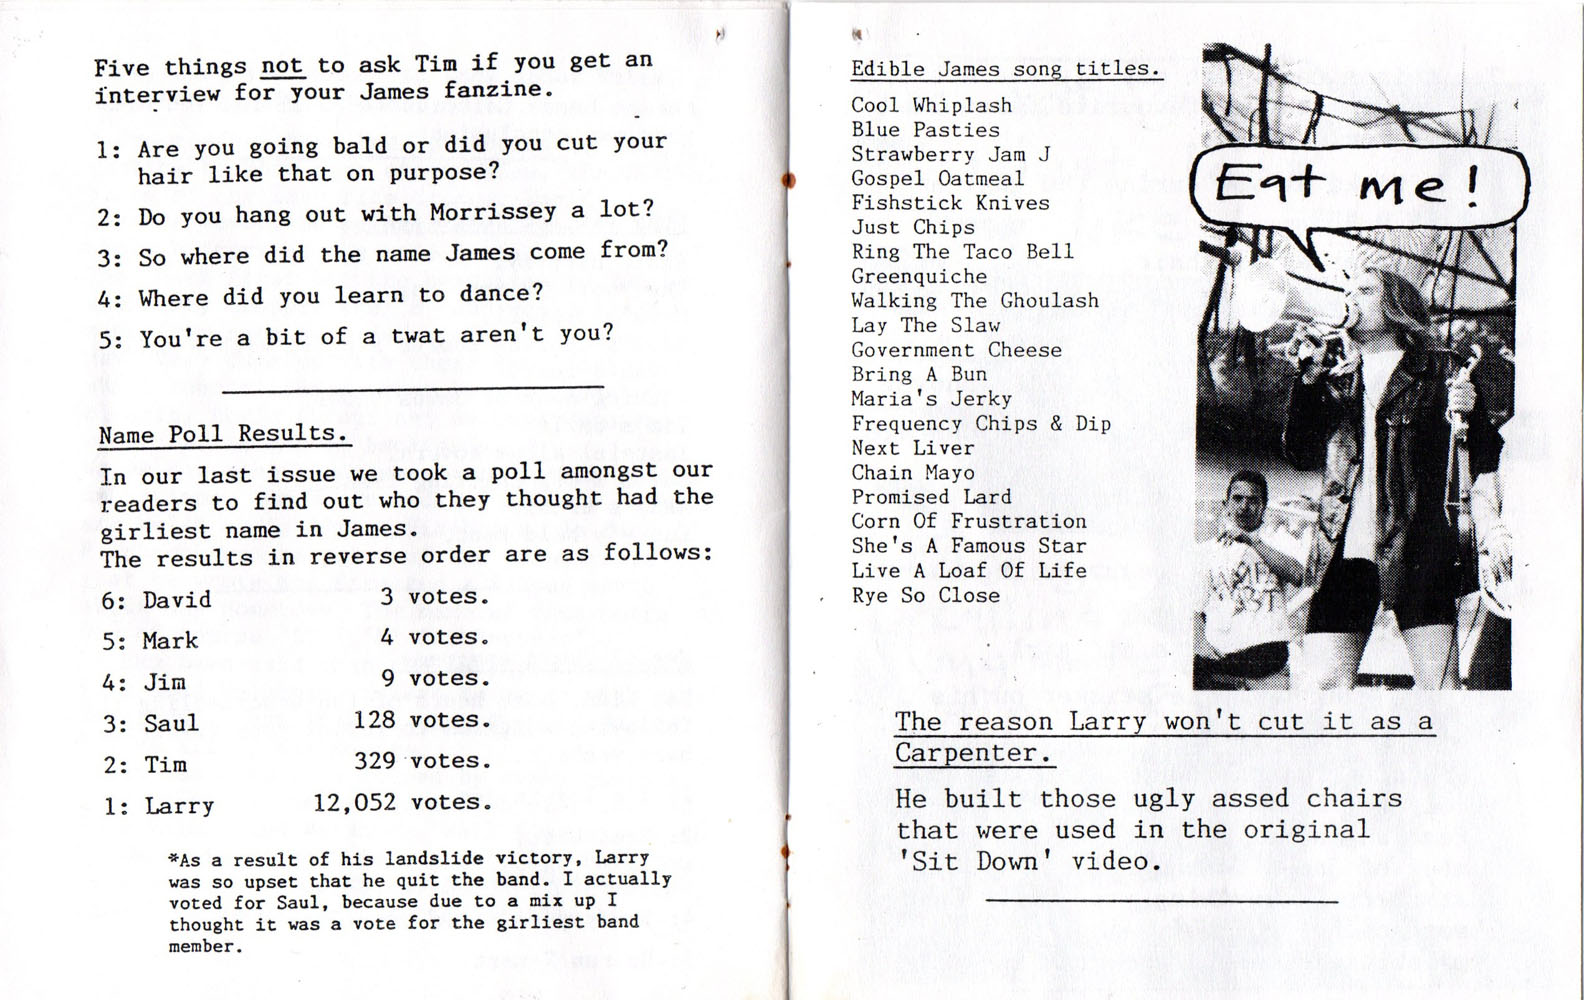 Five things not to ask Tim if you get an
interview for your James fanzine.
1: Are you going bald or did you cut your
hair like that on purpose?
2: Do you hang out with Morrissey a lot?
3: So where did the name James come from?
4: Where did you learn to dance?
5: You're a bit of a twat aren't you?
Name Poll Results.
In our last issue we took a poll amongst our
readers to find out who they thought had the
girliest name in James.
The results in reverse order are as follows:
6: David 3 votes.
5: Mark 4 votes.
4: Jim 9 votes.
3: Saul 128 votes.
2: Tim 329 votes.
1: Larry 12,052 votes.
*As a result of his landslide victory, Larry
was so upset that he quit the band. I actually
voted for Saul, because due to a mix up I
thought it was a vote for the girliest band
member.
Edible James song titles.
Cool Whiplash
Blue Pasties
Strawberry Jam J
Gospel Oatmeal
Fishstick Knives
Just Chips
Ring The Taco Bell
Greenquiche
Walking The Ghoulash
Lay The Slaw
Government Cheese
Bring A Bun
Maria's Jerky
Frequency Chips & Dip
Next Liver
Chain Mayo
Promised Lard
Corn Of Frustration
She's A Famous Star
Live A Loaf Of Life
Rye So Close
Eat me!
The reason Larry won't cut it as a
Carpenter.
He built those ugly assed chairs
that were used in the original
'Sit Down' video.